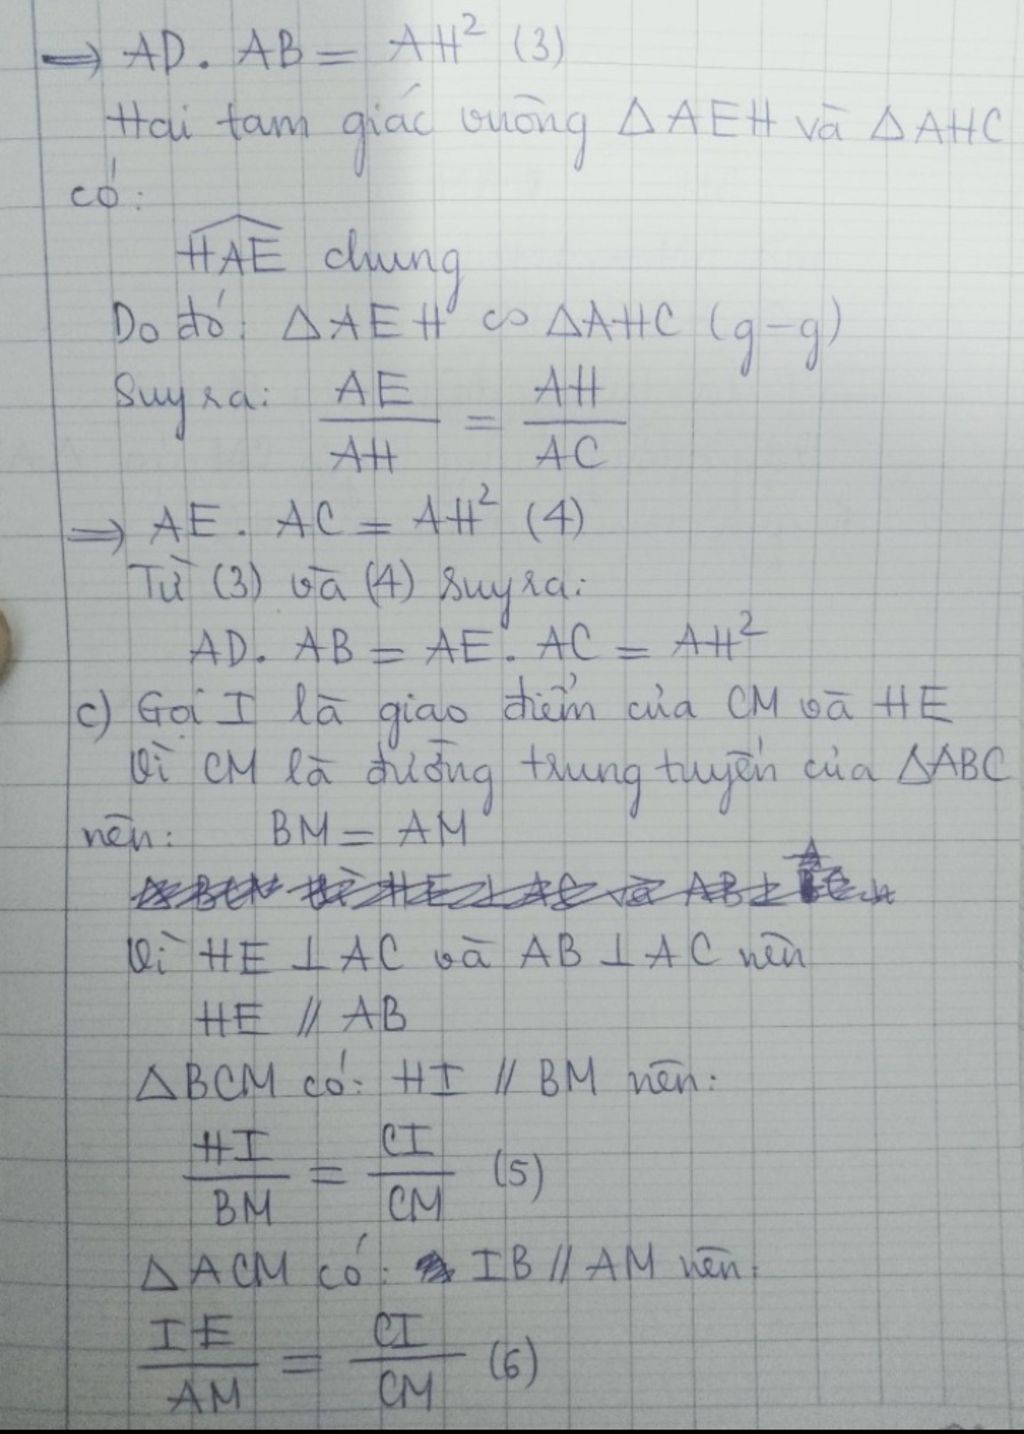 ⟹ AD. AB = AH² (3)
Hai tam giác vuông △AEH và △AHC
có:
\widehat{HAE} chung
Do đó: △AEH ∽ △AHC (g-g)
Suy ra: \frac{AE}{AH} = \frac{AH}{AC}
⟹ AE. AC = AH² (4)
Từ (3) và (4) suy ra:
AD. AB = AE. AC = AH²
c) Gọi I là giao điểm của CM và HE
Vì CM là đường trung tuyến của △ABC
nên: BM = AM
Vì HE ⊥ AC và AB ⊥ AC nên
HE // AB
△BCM có: HI // BM nên:
\frac{HI}{BM} = \frac{CI}{CM} (5)
△ACM có: IB // AM nên:
\frac{IE}{AM} = \frac{CI}{CM} (6)